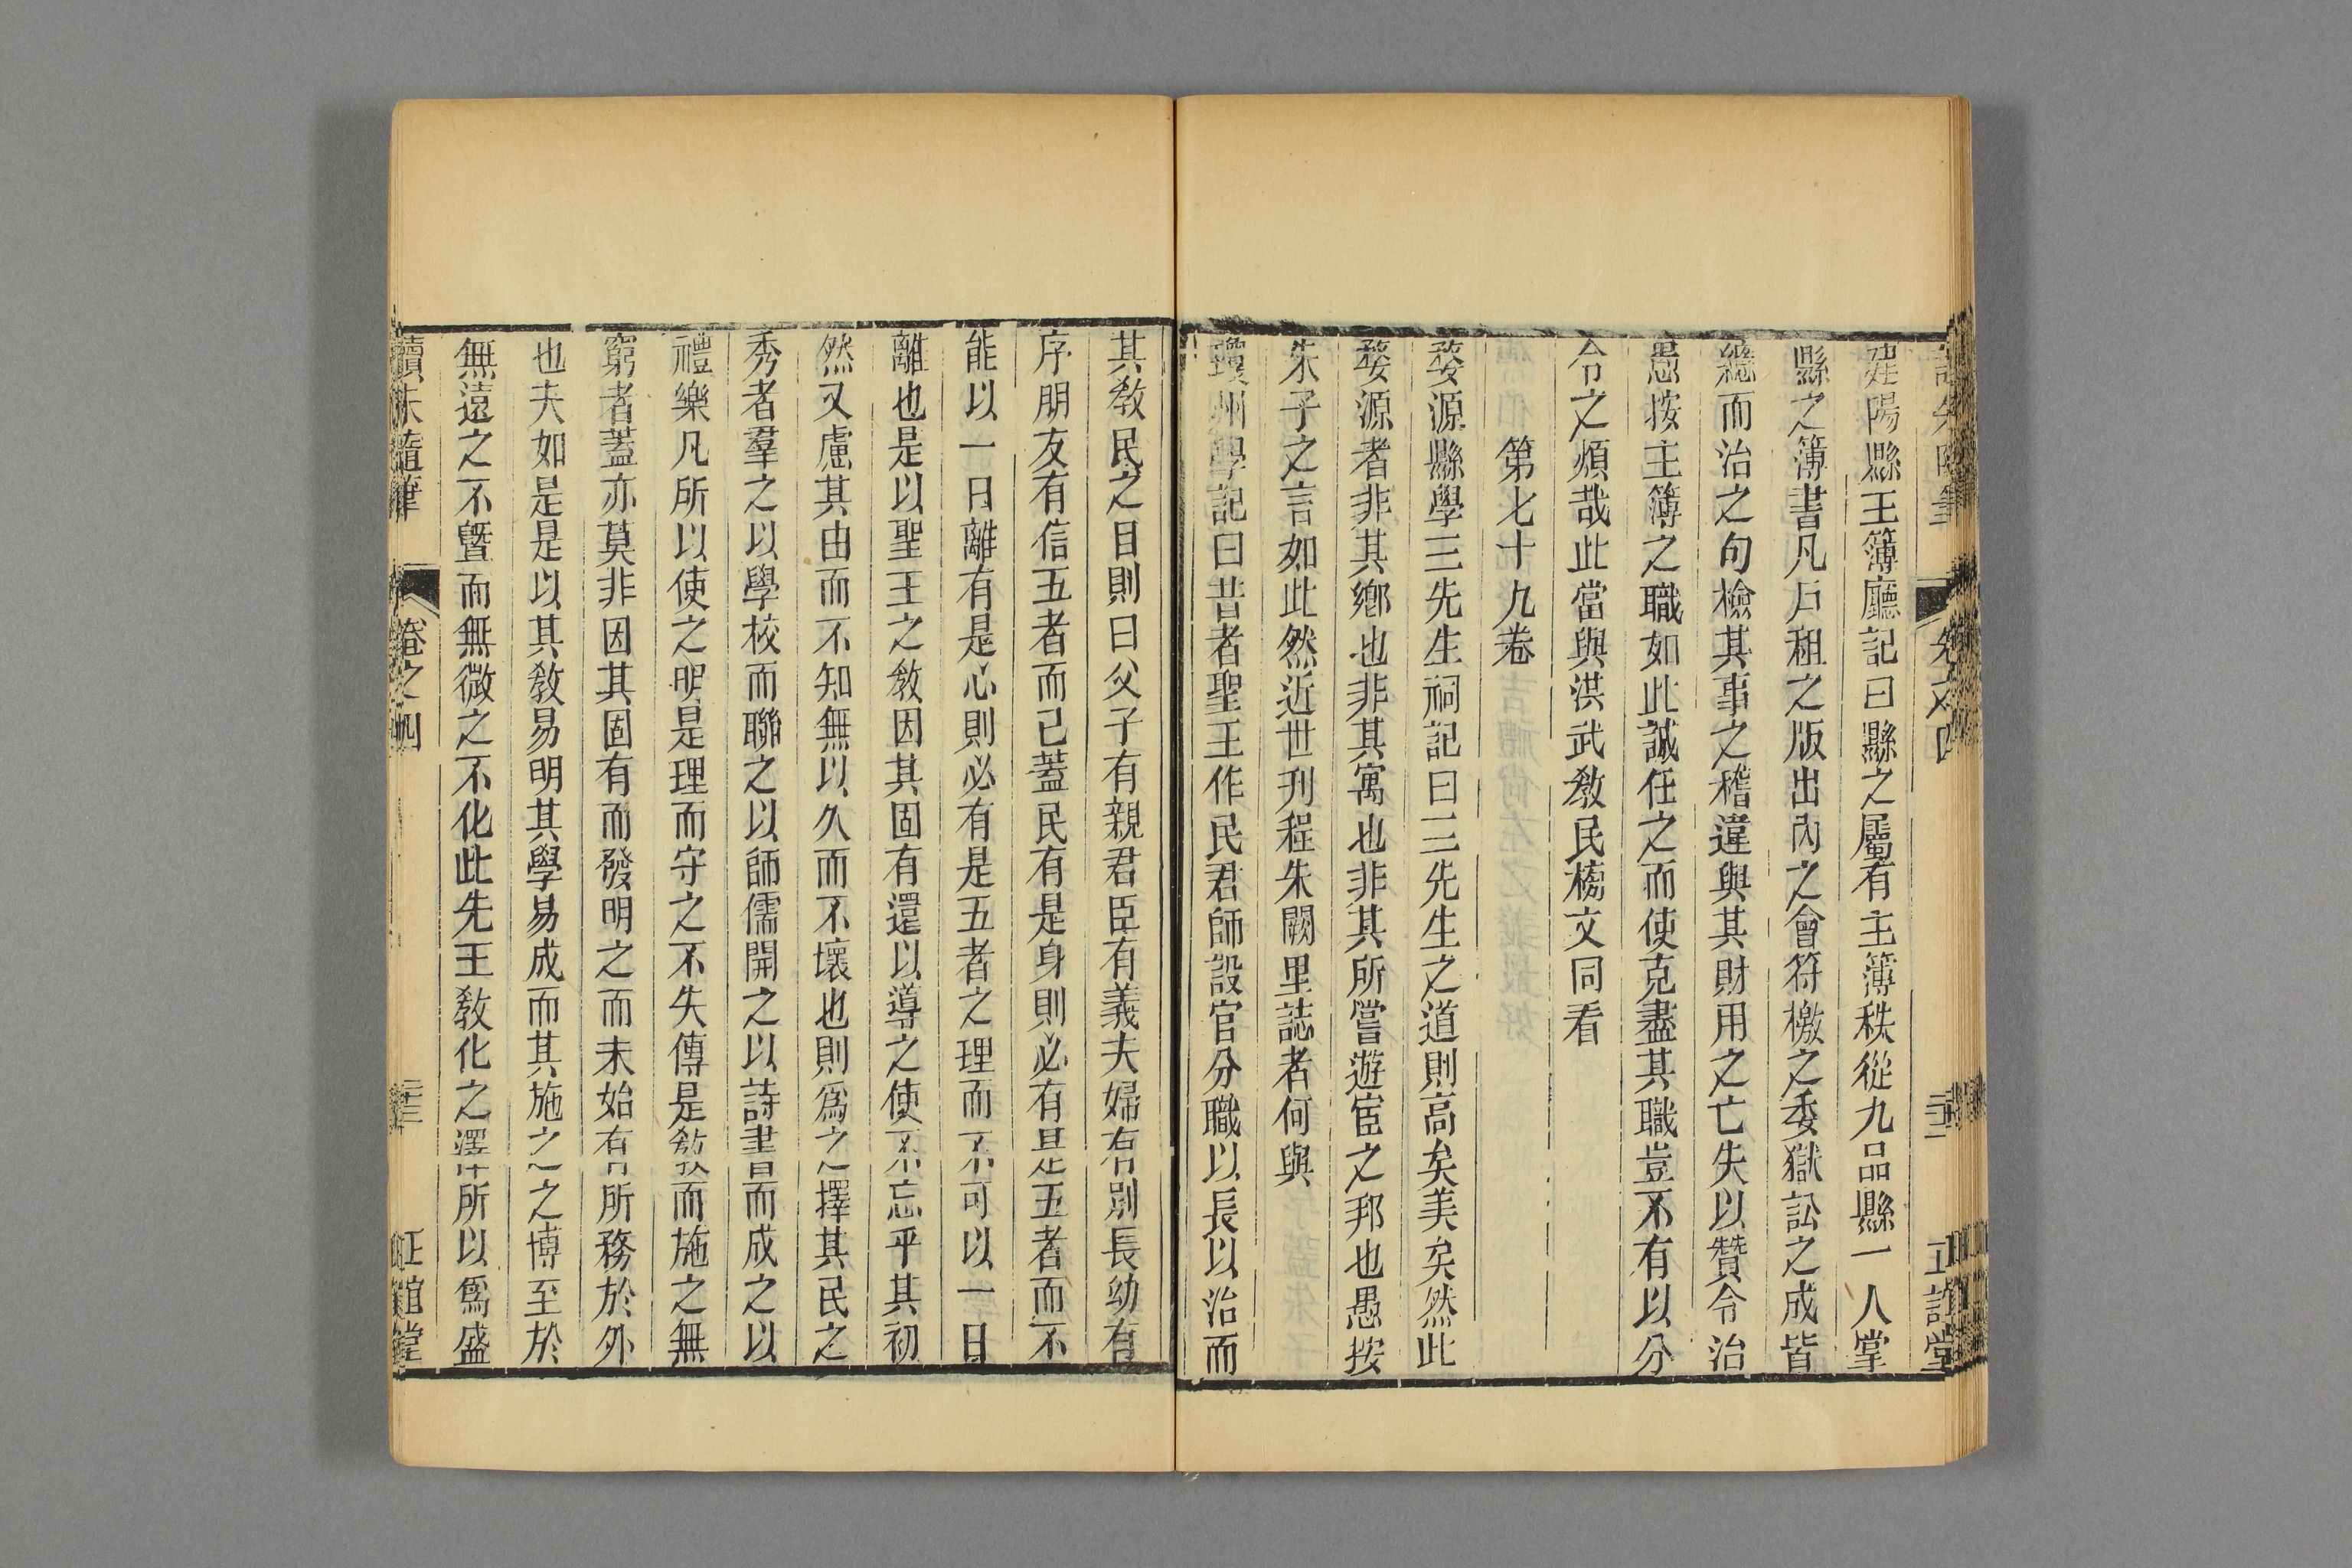 建陽縣主簿廳記曰縣之屬有主簿秩從九品縣一人掌
縣之簿書凡戶租之版出內之會符檄之委獄訟之成皆
總而治之句檢其事之稽違與其財用之亡失以贊令治
愚按主簿之職如此誠任之而使克盡其職豈不有以分
令之煩哉此當與洪武敎民榜文同看
第七十九卷
婺源縣學三先生祠記曰三先生之道則高矣美矣然此
婺源者非其鄉也非其寓也非其所嘗遊宦之邦也愚按
朱子之言如此然近世刋程朱闕里誌者何與
瓊州學記曰昔者聖王作民君師設官分職以長以治而
其敎民之目則曰父子有親君臣有義夫婦有別長幼有
序朋友有信五者而已蓋民有是身則必有是五者而不
能以一日離有是心則必有是五者之理而不可以一日
離也是以聖王之敎因其固有還以導之使不忘乎其初
然又慮其由而不知無以久而不壞也則爲之擇其民之
秀者羣之以學校而聯之以師儒開之以詩書而成之以
禮樂凡所以使之明是理而守之不失傳是敎而施之無
窮者蓋亦莫非因其固有而發明之而未始有所務於外
也夫如是是以其敎易明其學易成而其施之之博至於
無遠之不曁而無微之不化此先王敎化之澤所以爲盛
讀朱隨筆 卷之四 二十三 正誼堂